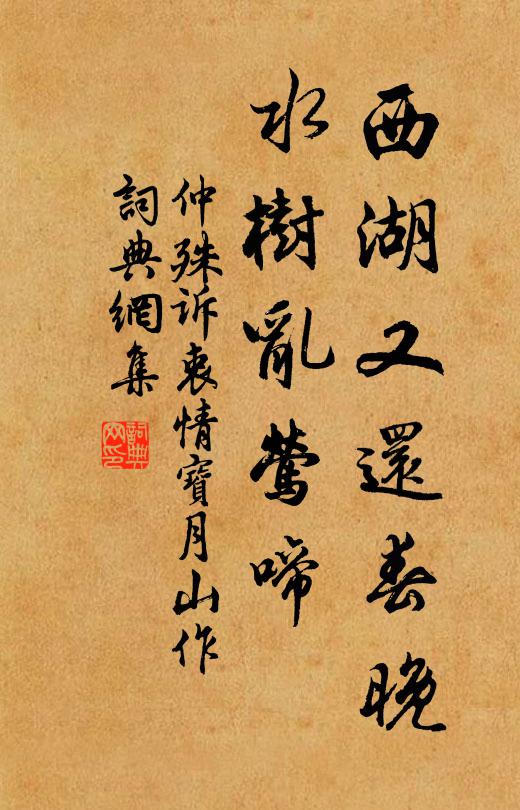 西湖又還春晚
水樹亂鶯啼
仲殊訴衷情寶月山作
詞典網集
詞典网印